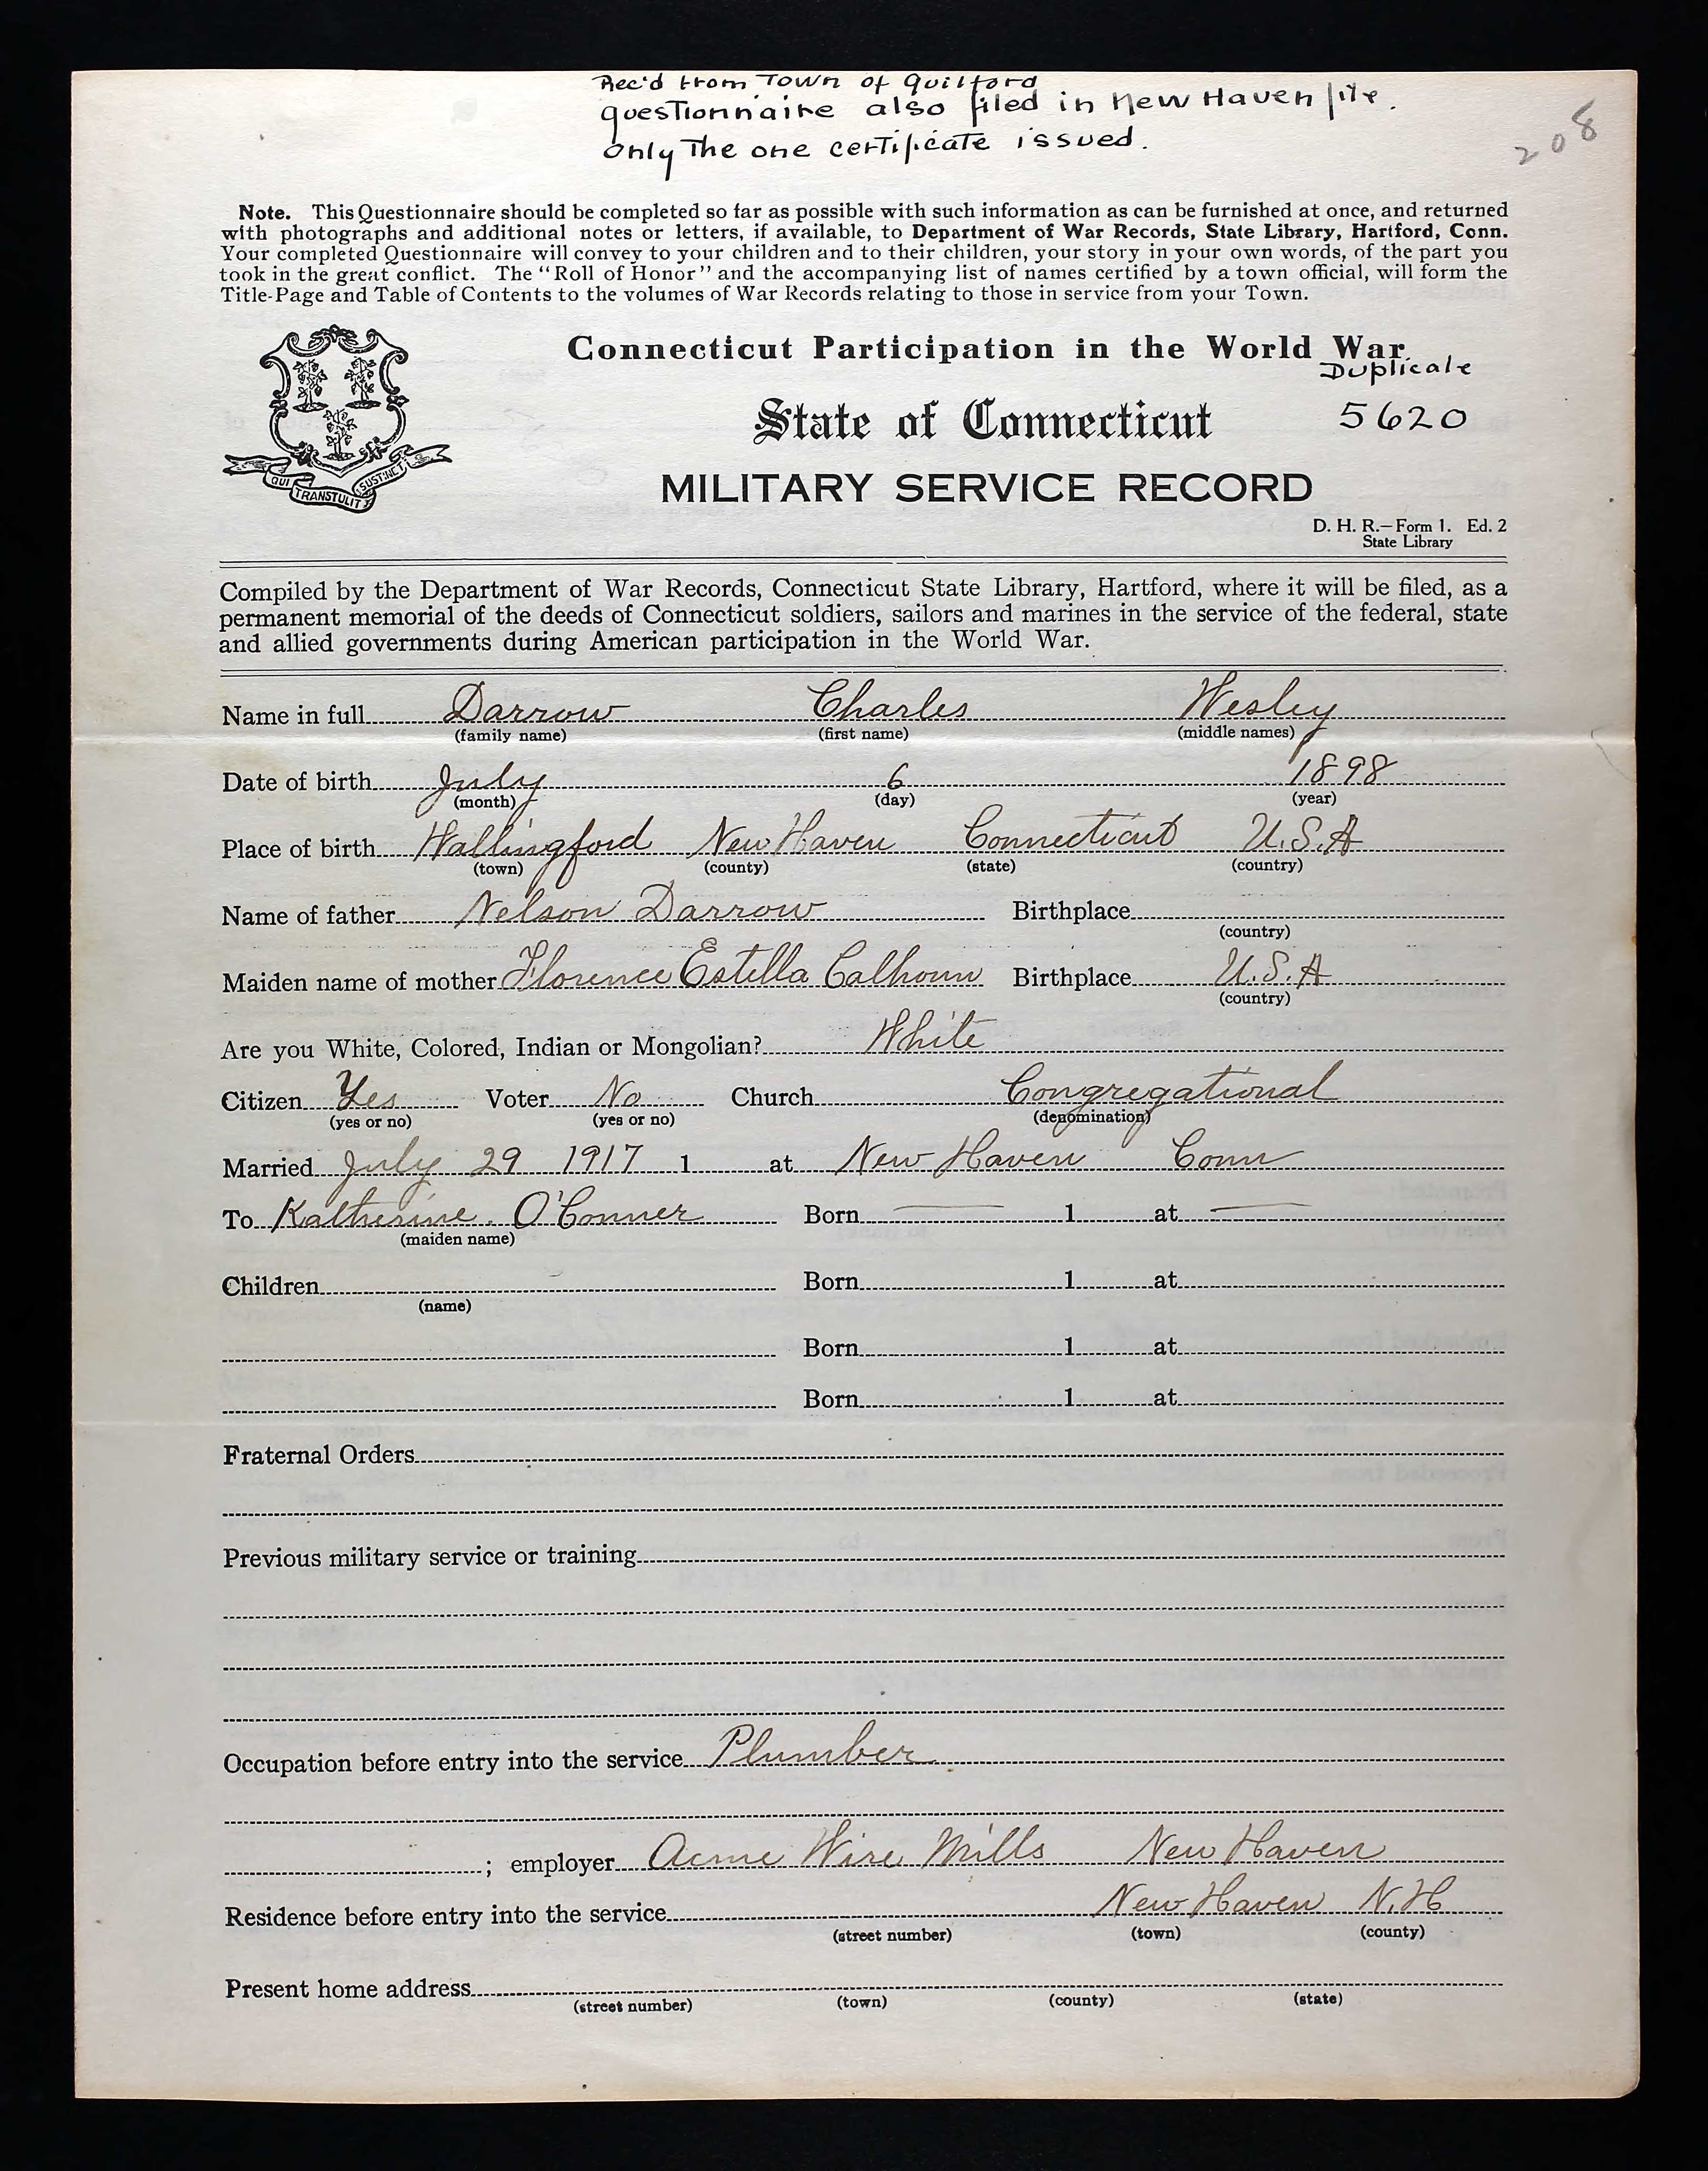 Rec'd from Town of Guilford
questionnaire also filed in New Haven file.
only the one certificate issued.
208
Note. This Questionnaire should be completed so far as possible with such information as can be furnished at once, and returned
with photographs and additional notes or letters, if available, to Department of War Records, State Library, Hartford, Conn.
Your completed Questionnaire will convey to your children and to their children, your story in your own words, of the part you
took in the great conflict. The "Roll of Honor" and the accompanying list of names certified by a town official, will form the
Title-Page and Table of Contents to the volumes of War Records relating to those in service from your Town.
Connecticut Participation in the World War.
Duplicate
State of Connecticut
5620
QUI TRANSTULIT SUSTINET
MILITARY SERVICE RECORD
D. H. R.—Form 1. Ed. 2
State Library
Compiled by the Department of War Records, Connecticut State Library, Hartford, where it will be filed, as a
permanent memorial of the deeds of Connecticut soldiers, sailors and marines in the service of the federal, state
and allied governments during American participation in the World War.
Name in full Darrow Charles Wesley
(family name) (first name) (middle names)
Date of birth July 6 1898
(month) (day) (year)
Place of birth Wallingford New Haven Connecticut U.S.A
(town) (county) (state) (country)
Name of father Nelson Darrow Birthplace
(country)
Maiden name of mother Florence Estella Calhoun Birthplace U.S.A
(country)
Are you White, Colored, Indian or Mongolian? White
Citizen Yes Voter No Church Congregational
(yes or no) (yes or no) (denomination)
Married July 29 1917 1 at New Haven Conn
To Katherine O'Conner Born — 1 at —
(maiden name)
Children Born 1 at
(name)
Born 1 at
Born 1 at
Fraternal Orders
Previous military service or training
Occupation before entry into the service Plumber
; employer Acme Wire Mills New Haven
Residence before entry into the service New Haven N.H
(street number) (town) (county)
Present home address
(street number) (town) (county) (state)